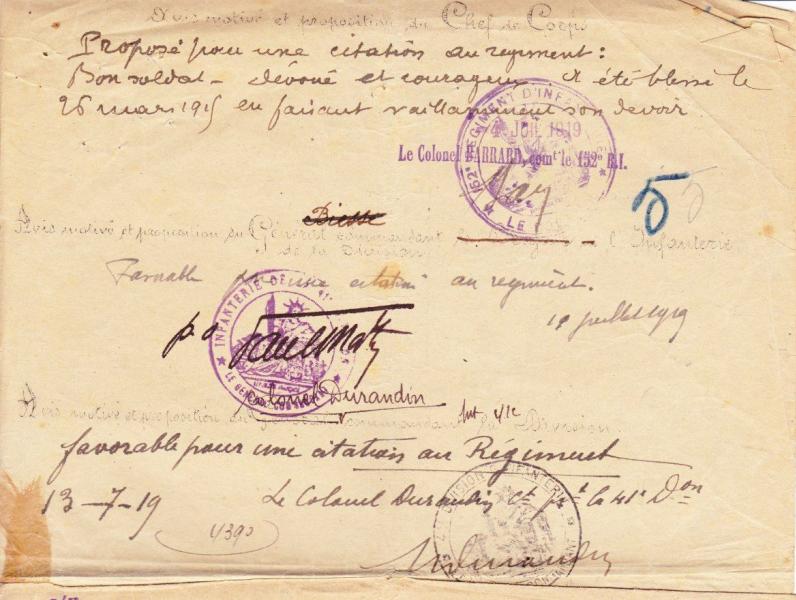 Avis motivé et proposition du Chef de Corps
Proposé pour une citation au régiment :
Bon soldat - dévoué et courageux A été blessé le
26 mars 1915 en faisant vaillamment son devoir
152e REGIMENT D'INF
4 JUIL 1919
Le Colonel BARRARD, comt le 152e R.I.
5
5
Biesse
Avis motivé et proposition du Général commandant l'Infanterie
de la Division
Favorable citation au régiment.
1919
INFANTERIE
p.o
Colonel Durandin
Avis motivé et proposition du Général commandant la Division.
favorable pour une citation au Régiment
13-7-19 Le Colonel Durandin Ct la 41e Don
4390
DIVISION D'INFANTERIE
Durandin